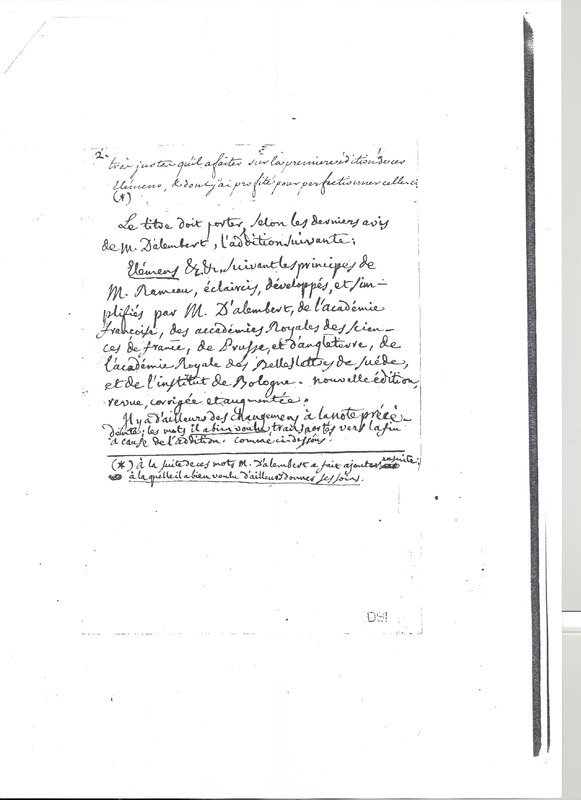 2.
très justes qu'il a faites sur la premiere édition de ces
Elémens, & dont j'ai profité pour perfectionner celle ci
(*)
Le titre doit porter, selon les derniers avis
de M. D'alembert, l'addition suivante:
Elémens &c. &c. suivant les principes de
M. Rameau, éclaircis, développés, et sim-
plifiés par M. D'alembert, de l'académie
francoise, des accadémies Royales des scien-
ces de france, de Prusse, et d'angleterre, de
l'académie Royale des Belles lettres de suéde,
et de l'institut de Bologne. nouvelle édition,
revue, corrigée et augmentée.
Il y a d'ailleurs des changemens à la note précé-
dente; les mots il a bien voulu transportés vers la fin
à cause de l'addition. comme ci dessous.
(*) à la suite de ces mots M. D'alembert a fait ajouter ensuite:
à la quelle il a bien voulu d'ailleurs donner ses soins.